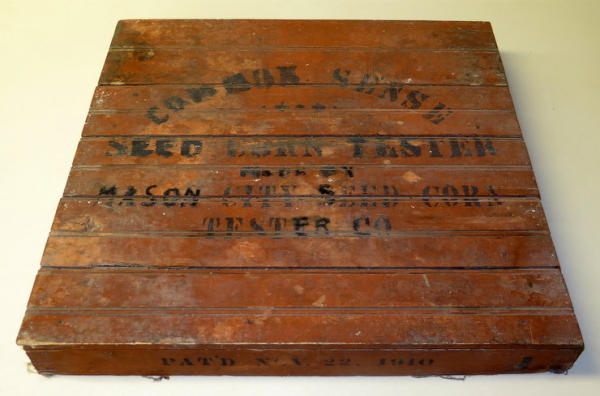 COMMON SENSE
SEED CORN TESTER
MADE BY
MASON CITY SEED CORN
TESTER CO
PAT'D NOV. 22, 1910